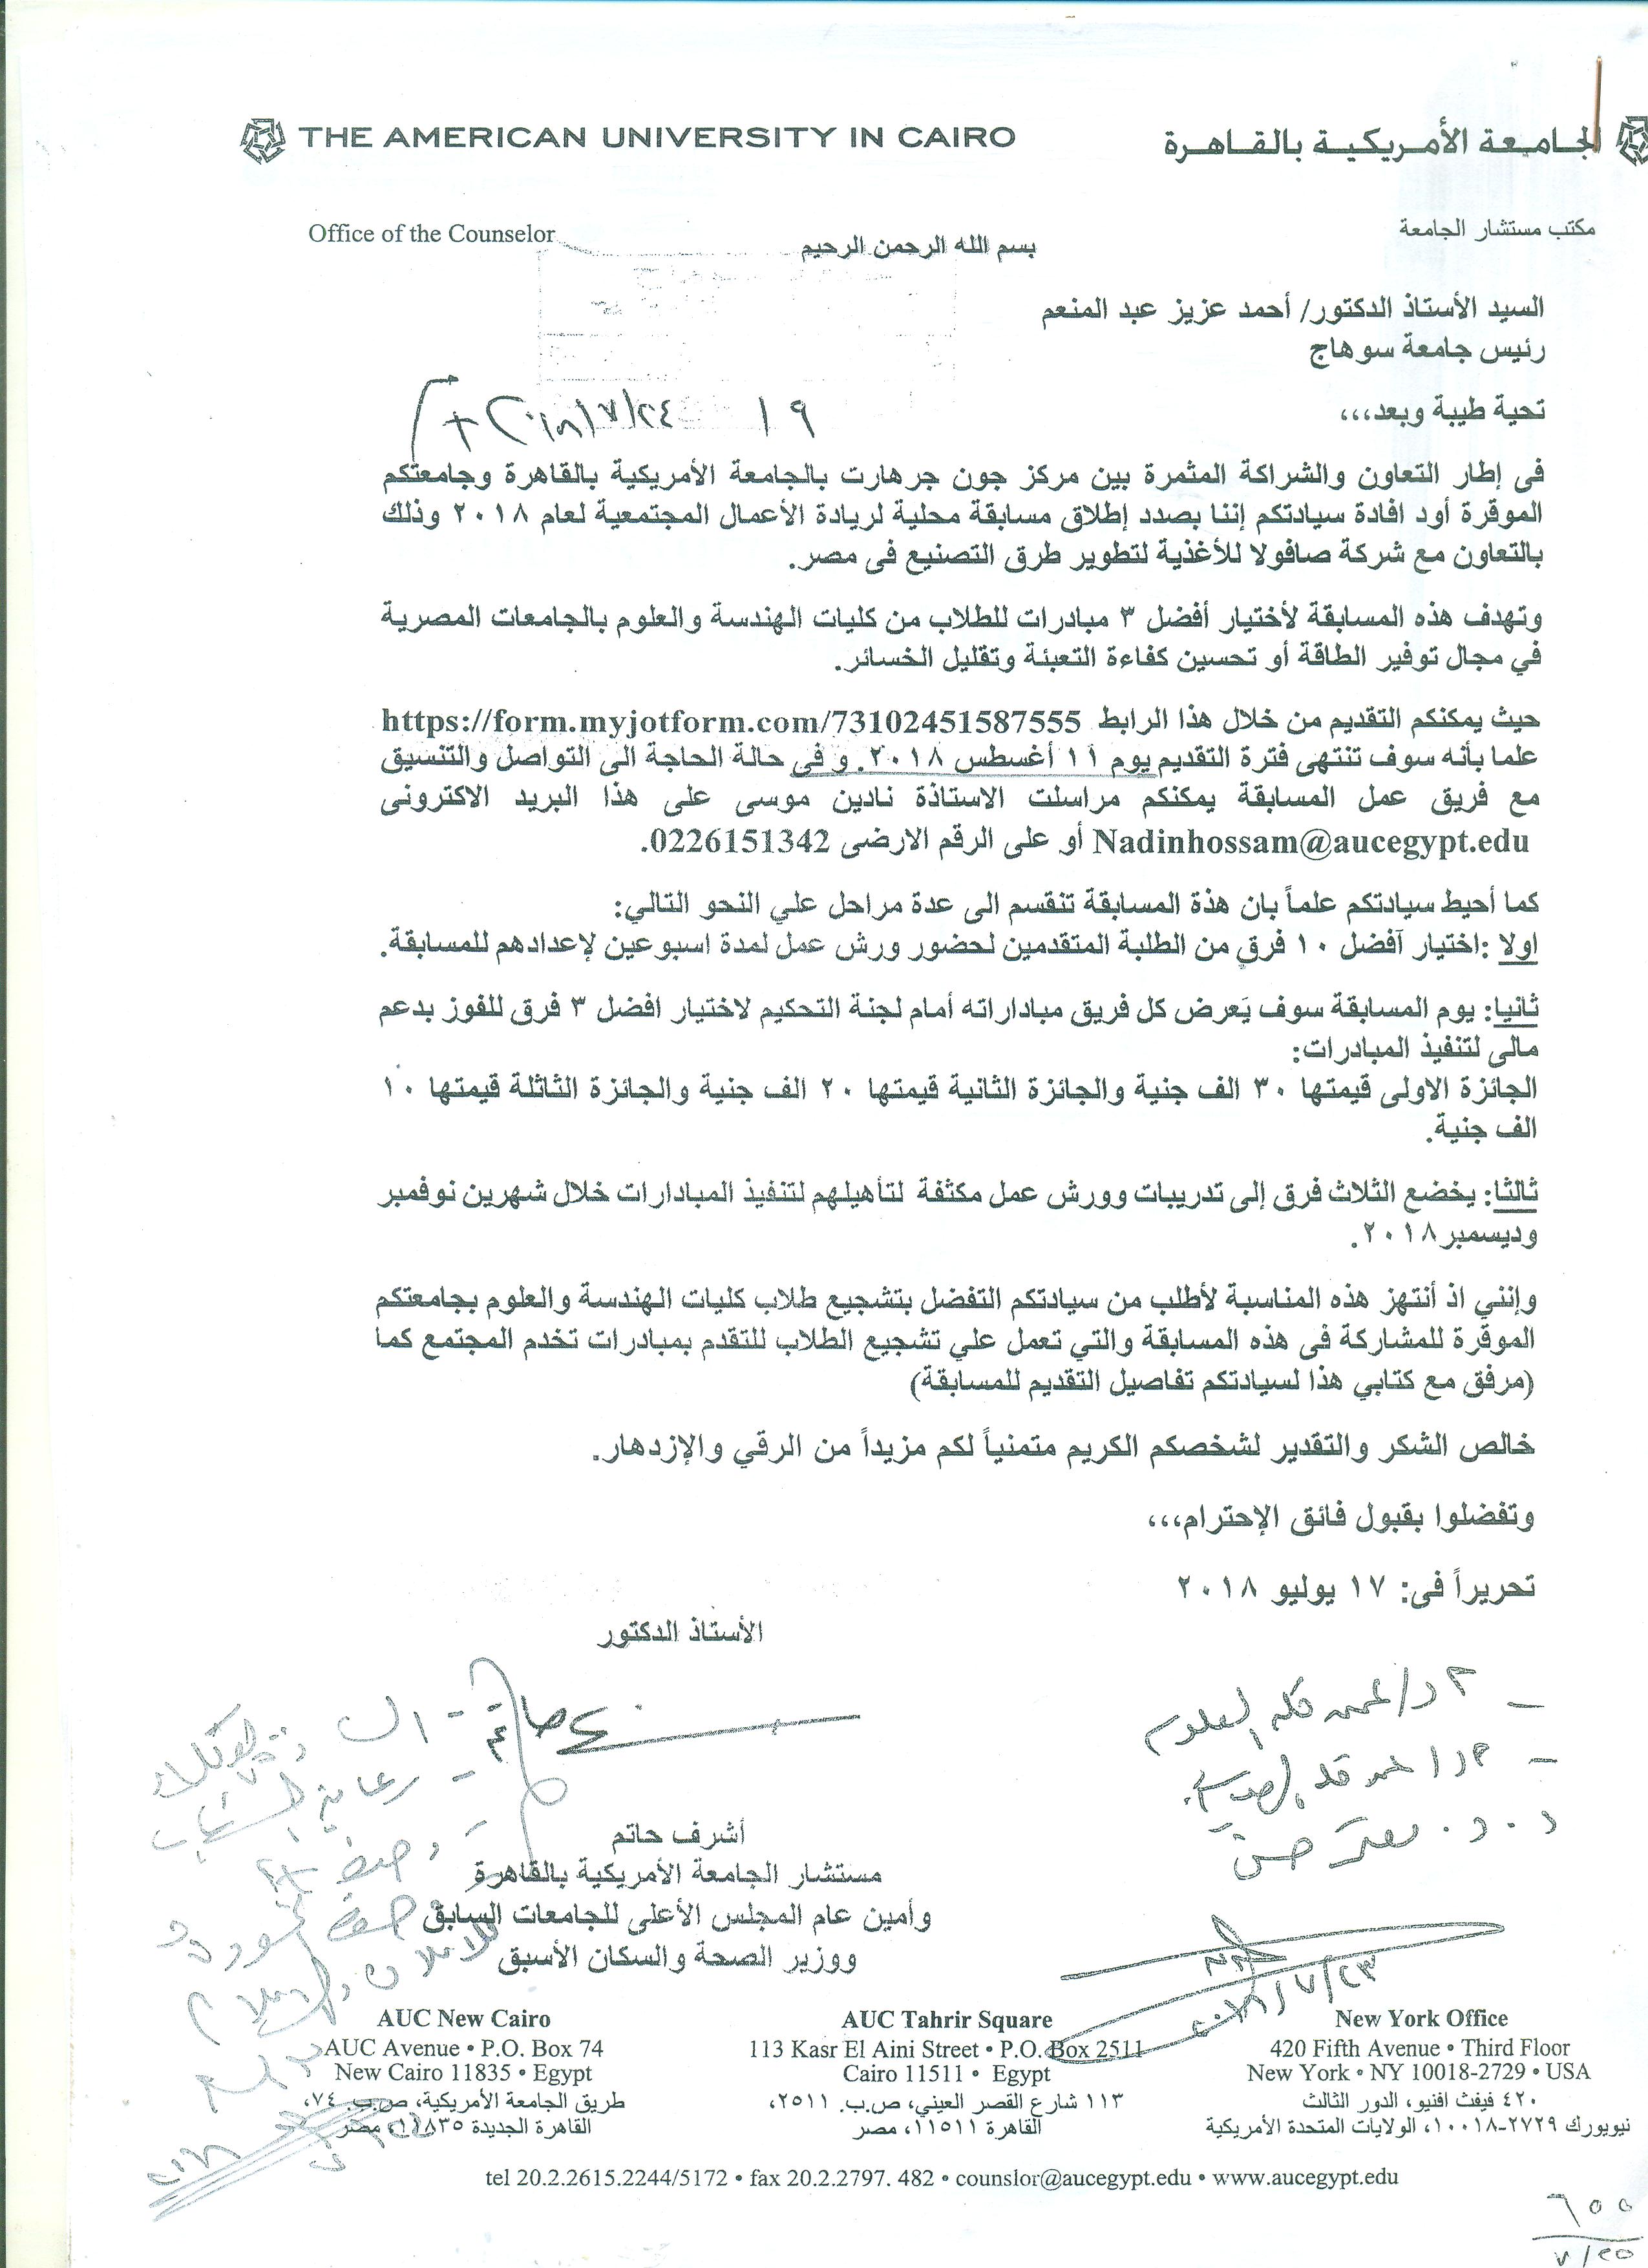 THE AMERICAN UNIVERSITY IN CAIRO
الجامعة الأمريكية بالقاهرة
Office of the Counselor
مكتب مستشار الجامعة
بسم الله الرحمن الرحيم
السيد الأستاذ الدكتور/ أحمد عزيز عبد المنعم
رئيس جامعة سوهاج
تحية طيبة وبعد،،،
٩١ ٢٠١٨/٧/٢٤
فى إطار التعاون والشراكة المثمرة بين مركز جون جرهارت بالجامعة الأمريكية بالقاهرة وجامعتكم
الموقرة أود افادة سيادتكم إننا بصدد إطلاق مسابقة محلية لريادة الأعمال المجتمعية لعام ٢٠١٨ وذلك
بالتعاون مع شركة صافولا للأغذية لتطوير طرق التصنيع فى مصر.
وتهدف هذه المسابقة لأختيار أفضل ٣ مبادرات للطلاب من كليات الهندسة والعلوم بالجامعات المصرية
في مجال توفير الطاقة أو تحسين كفاءة التعبئة وتقليل الخسائر.
حيث يمكنكم التقديم من خلال هذا الرابط https://form.myjotform.com/73102451587555
علما بأنه سوف تنتهى فترة التقديم يوم ١١ أغسطس ٢٠١٨. و فى حالة الحاجة الى التواصل والتنسيق
مع فريق عمل المسابقة يمكنكم مراسلت الاستاذة نادين موسى على هذا البريد الاكترونى
Nadinhossam@aucegypt.edu أو على الرقم الارضى 0226151342.
كما أحيط سيادتكم علماً بان هذة المسابقة تنقسم الى عدة مراحل علي النحو التالي:
اولا :اختيار آفضل ١٠ فرق من الطلبة المتقدمين لحضور ورش عمل لمدة اسبوعين لإعدادهم للمسابقة.
ثانيا: يوم المسابقة سوف يَعرض كل فريق مباداراته أمام لجنة التحكيم لاختيار افضل ٣ فرق للفوز بدعم
مالى لتنفيذ المبادرات:
الجائزة الاولى قيمتها ٣٠ الف جنية والجائزة الثانية قيمتها ٢٠ الف جنية والجائزة الثاثلة قيمتها ١٠
الف جنية.
ثالثا: يخضع الثلاث فرق إلى تدريبات وورش عمل مكثفة لتأهيلهم لتنفيذ المبادارات خلال شهرين نوفمبر
وديسمبر٢٠١٨.
وإنني اذ أنتهز هذه المناسبة لأطلب من سيادتكم التفضل بتشجيع طلاب كليات الهندسة والعلوم بجامعتكم
الموقرة للمشاركة فى هذه المسابقة والتي تعمل علي تشجيع الطلاب للتقدم بمبادرات تخدم المجتمع كما
(مرفق مع كتابي هذا لسيادتكم تفاصيل التقديم للمسابقة)
خالص الشكر والتقدير لشخصكم الكريم متمنياً لكم مزيداً من الرقي والإزدهار.
وتفضلوا بقبول فائق الإحترام،،،
تحريراً فى: ١٧ يوليو ٢٠١٨
الأستاذ الدكتور
أشرف حاتم
مستشار الجامعة الأمريكية بالقاهرة
وأمين عام المجلس الأعلى للجامعات السابق
ووزير الصحة والسكان الأسبق
٢٠١٨/٧/٢٣
AUC New Cairo
AUC Avenue • P.O. Box 74
New Cairo 11835 • Egypt
طريق الجامعة الأمريكية، ص.ب. ٧٤،
القاهرة الجديدة ١١٨٣٥، مصر
AUC Tahrir Square
113 Kasr El Aini Street • P.O. Box 2511
Cairo 11511 • Egypt
١١٣ شارع القصر العيني، ص.ب. ٢٥١١،
القاهرة ١١٥١١، مصر
New York Office
420 Fifth Avenue • Third Floor
New York • NY 10018-2729 • USA
٤٢٠ فيفث افنيو، الدور الثالث
نيويورك ٢٧٢٩-١٠٠١٨، الولايات المتحدة الأمريكية
tel 20.2.2615.2244/5172 • fax 20.2.2797. 482 • counslor@aucegypt.edu • www.aucegypt.edu
٦٥٥
٧/٢٥